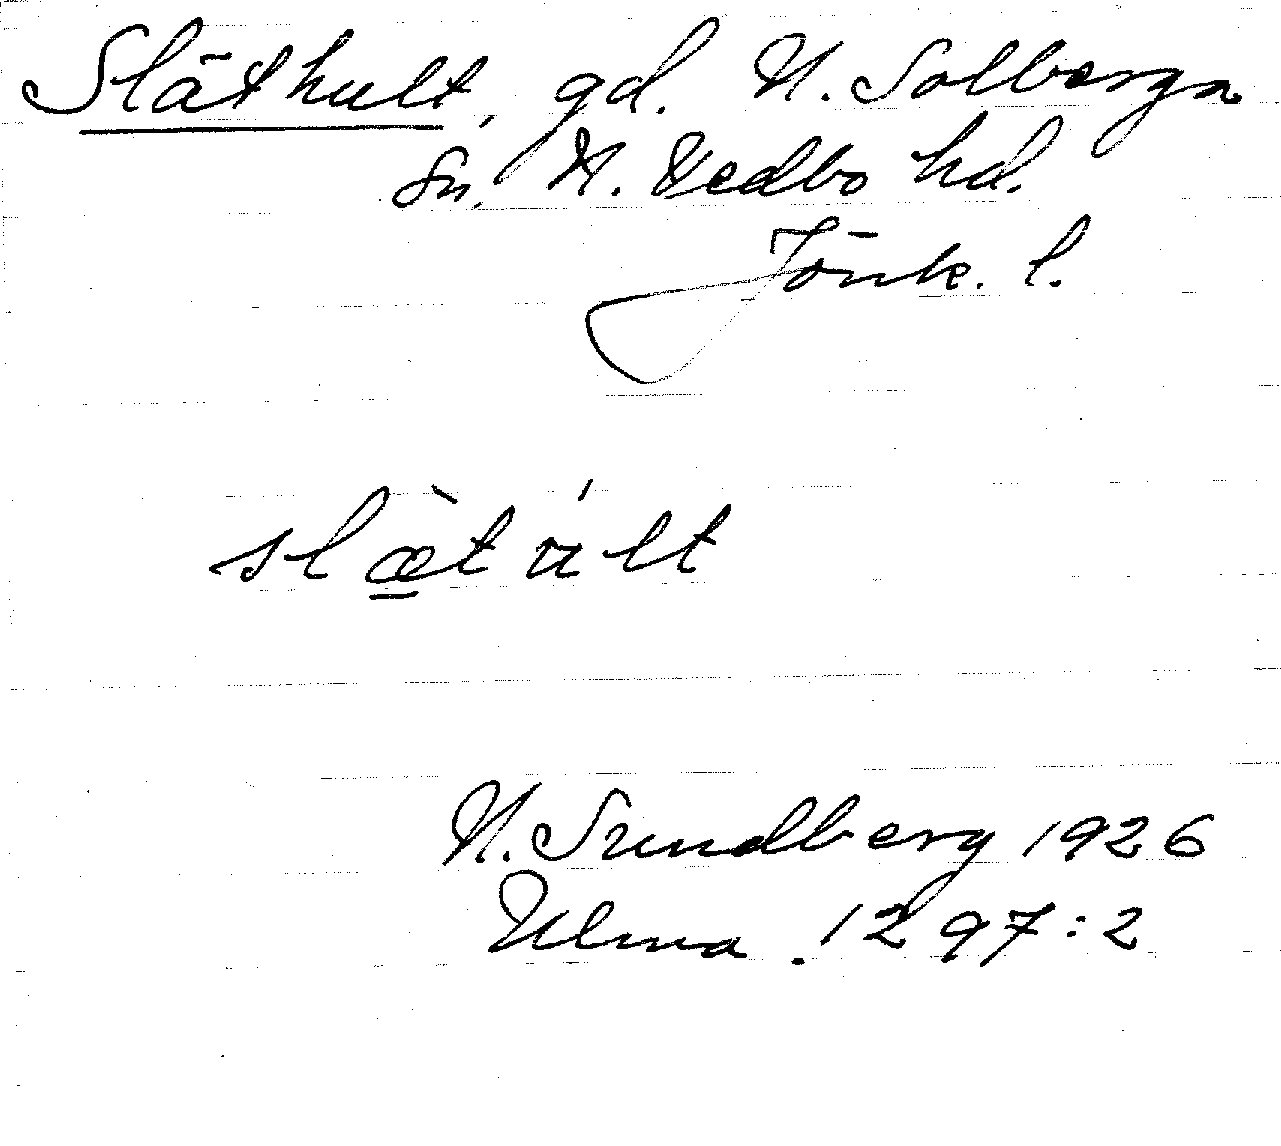 Släthult, gd. N. Solberga
sn. N. Vedbo hd.
Jönk. l.
slæ̀túlt
N. Sundberg 1926
Ulma. 1297:2